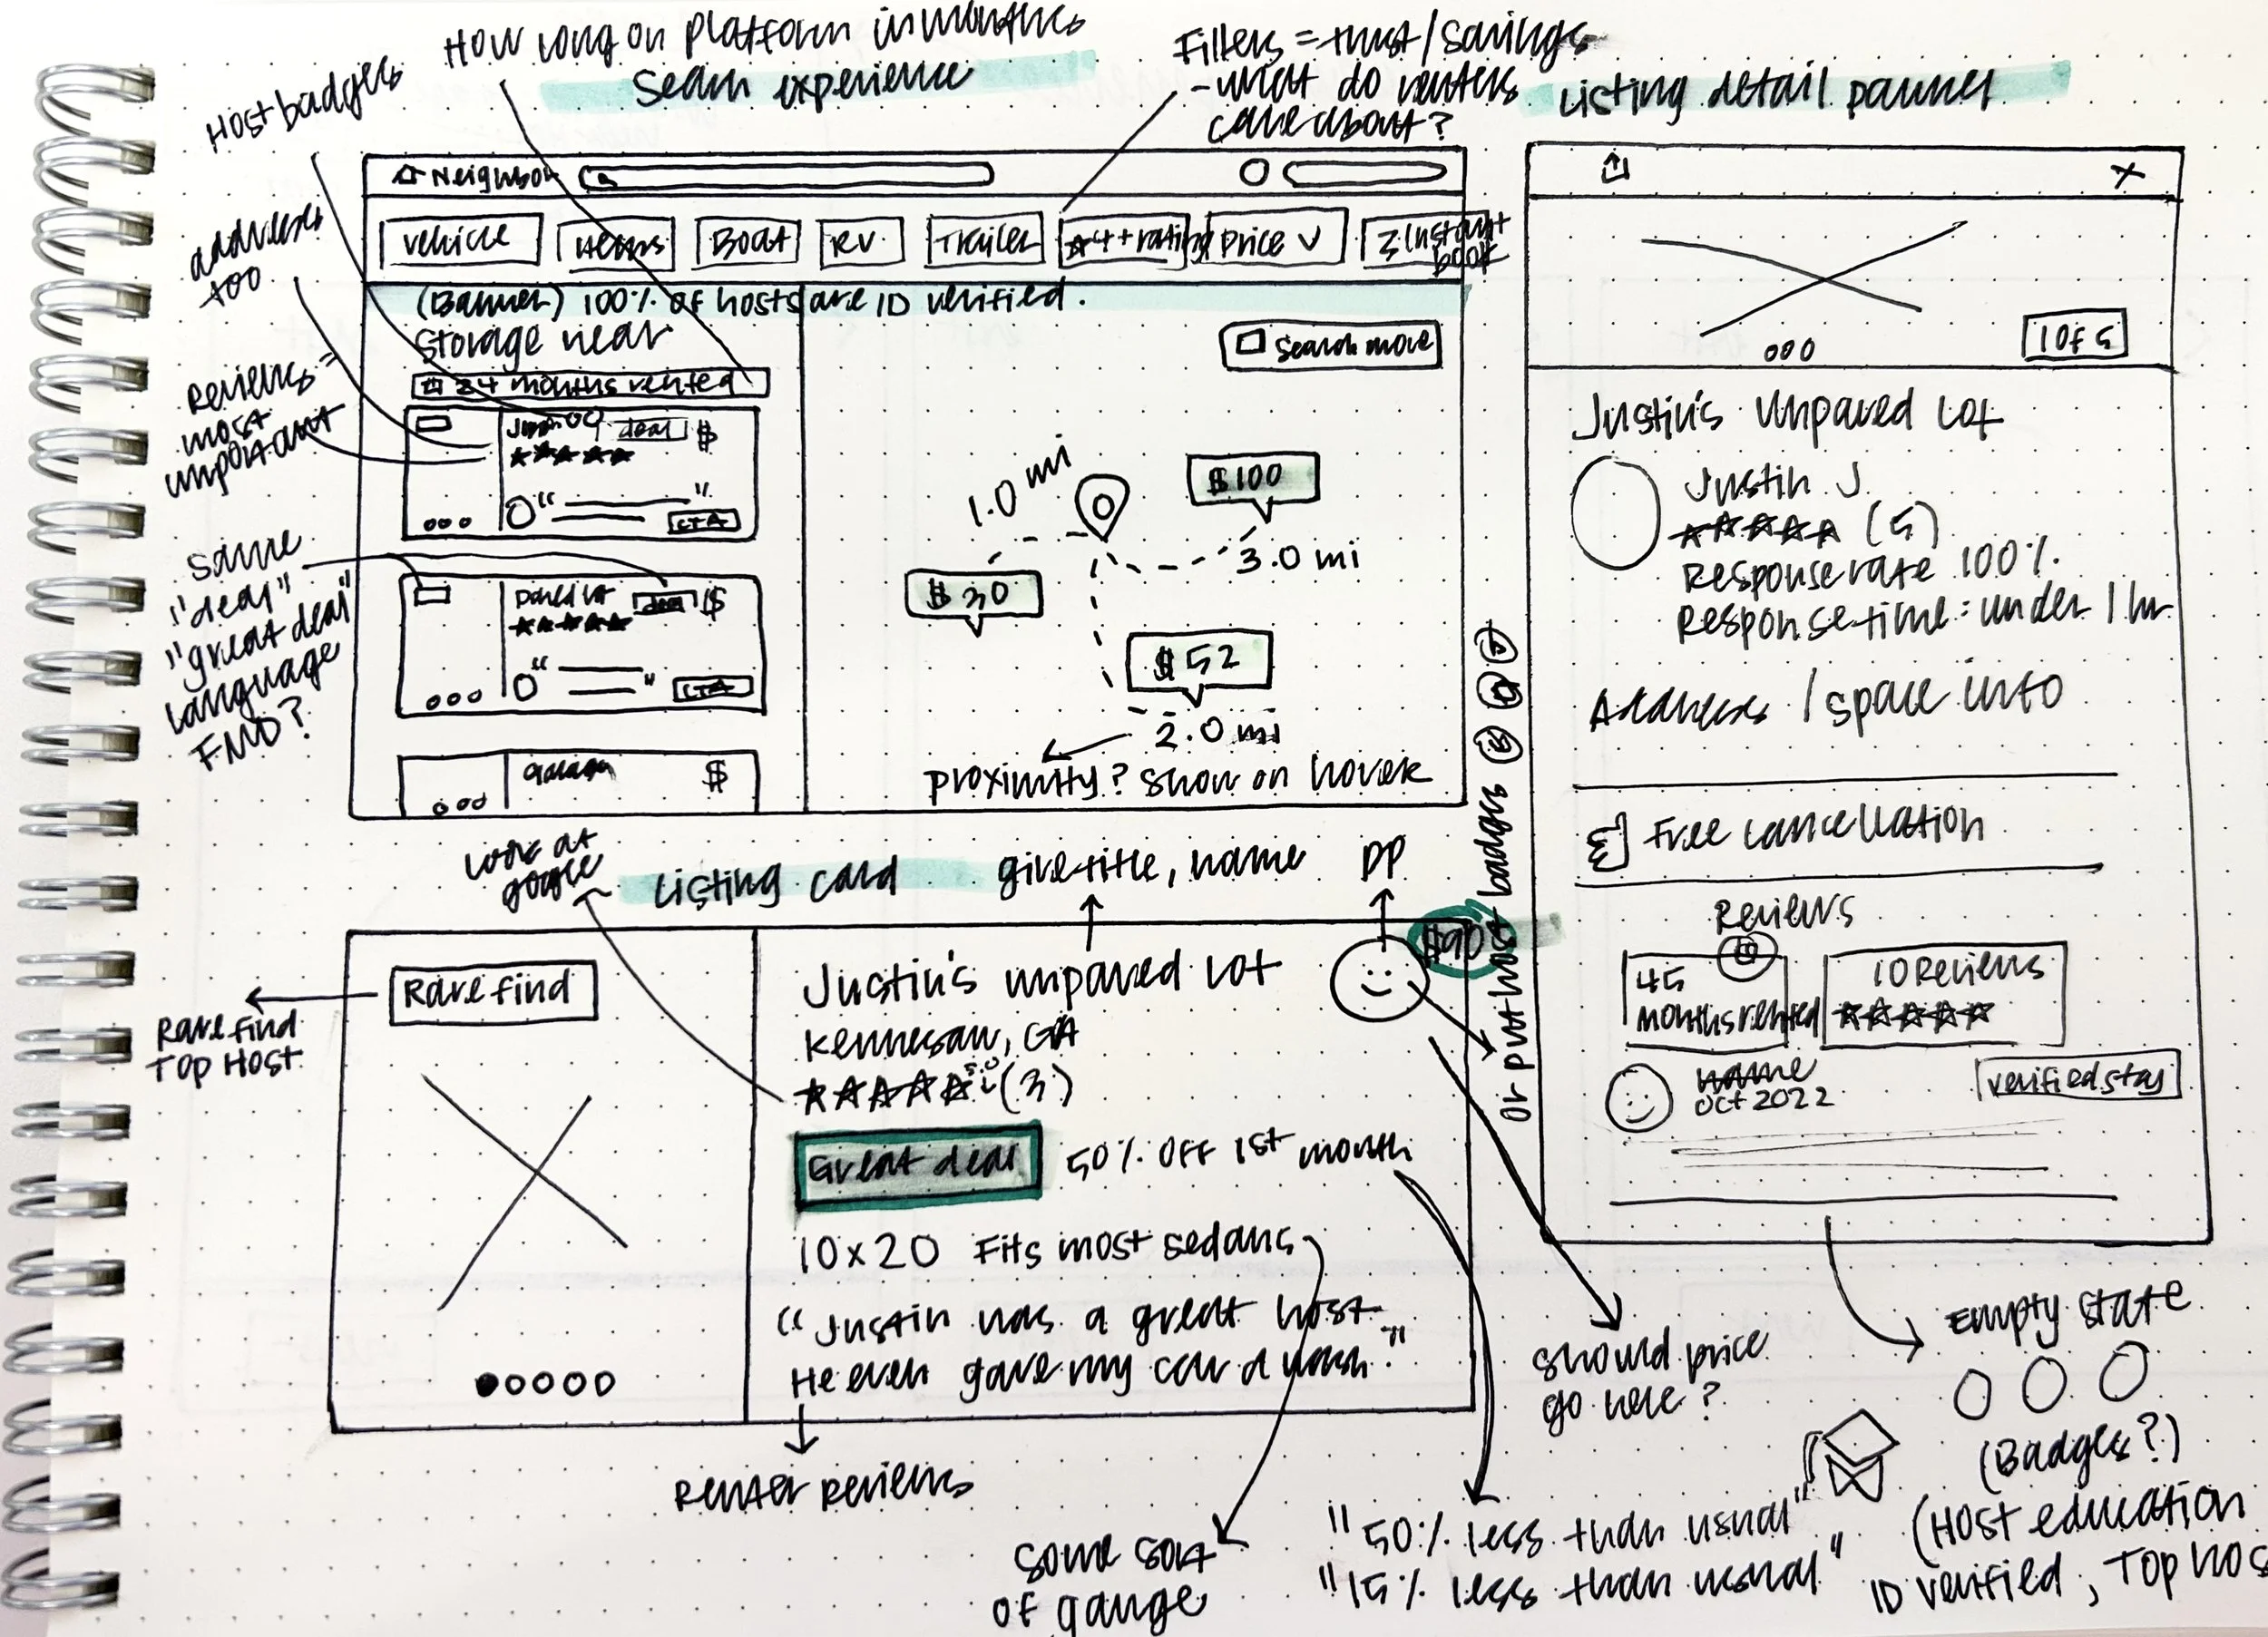 How long on platform in months
Seam experience
Host badges
Filters = trust/savings
- what do renters
care about?
Listing detail pannel
Neighbor
Vehicle
Items
Boat
RV
Trailer
4+ rating
Price
Instant
book
(Banner) 100% of hosts are ID verified.
Storage near
Search move
24 months rented
addresses
too
Reviews =
most
important
deal $
" "
CTA
Same
"deal"
"great deal"
language
FMD?
Paved lot deal $
" "
CTA
Garage $
1.0 mi
$100
3.0 mi
$30
$52
2.0 mi
proximity? Show on hover
1 of 5
Justin's Unpaved Lot
Justin J
(5)
Response rate 100%
Response time: under 1 hr
Address / space info
Free cancellation
Reviews
45
months rented
10 Reviews
name
Oct 2022
verified stay
or put host badges
Look at
google
Listing card
give title, name
PP
$90
Rare find
Rare find
Top Host
Justin's unpaved lot
Kennesaw, GA
5.0
(3)
Great deal
50% off 1st month
10x20 Fits most sedans
"Justin was a great host.
He even gave my car a wash."
Renter reviews
Some sort
of gauge
should price
go here?
"50% less than usual"
"15% less than usual"
Empty state
(Badges?)
(Host education
ID verified, Top hos